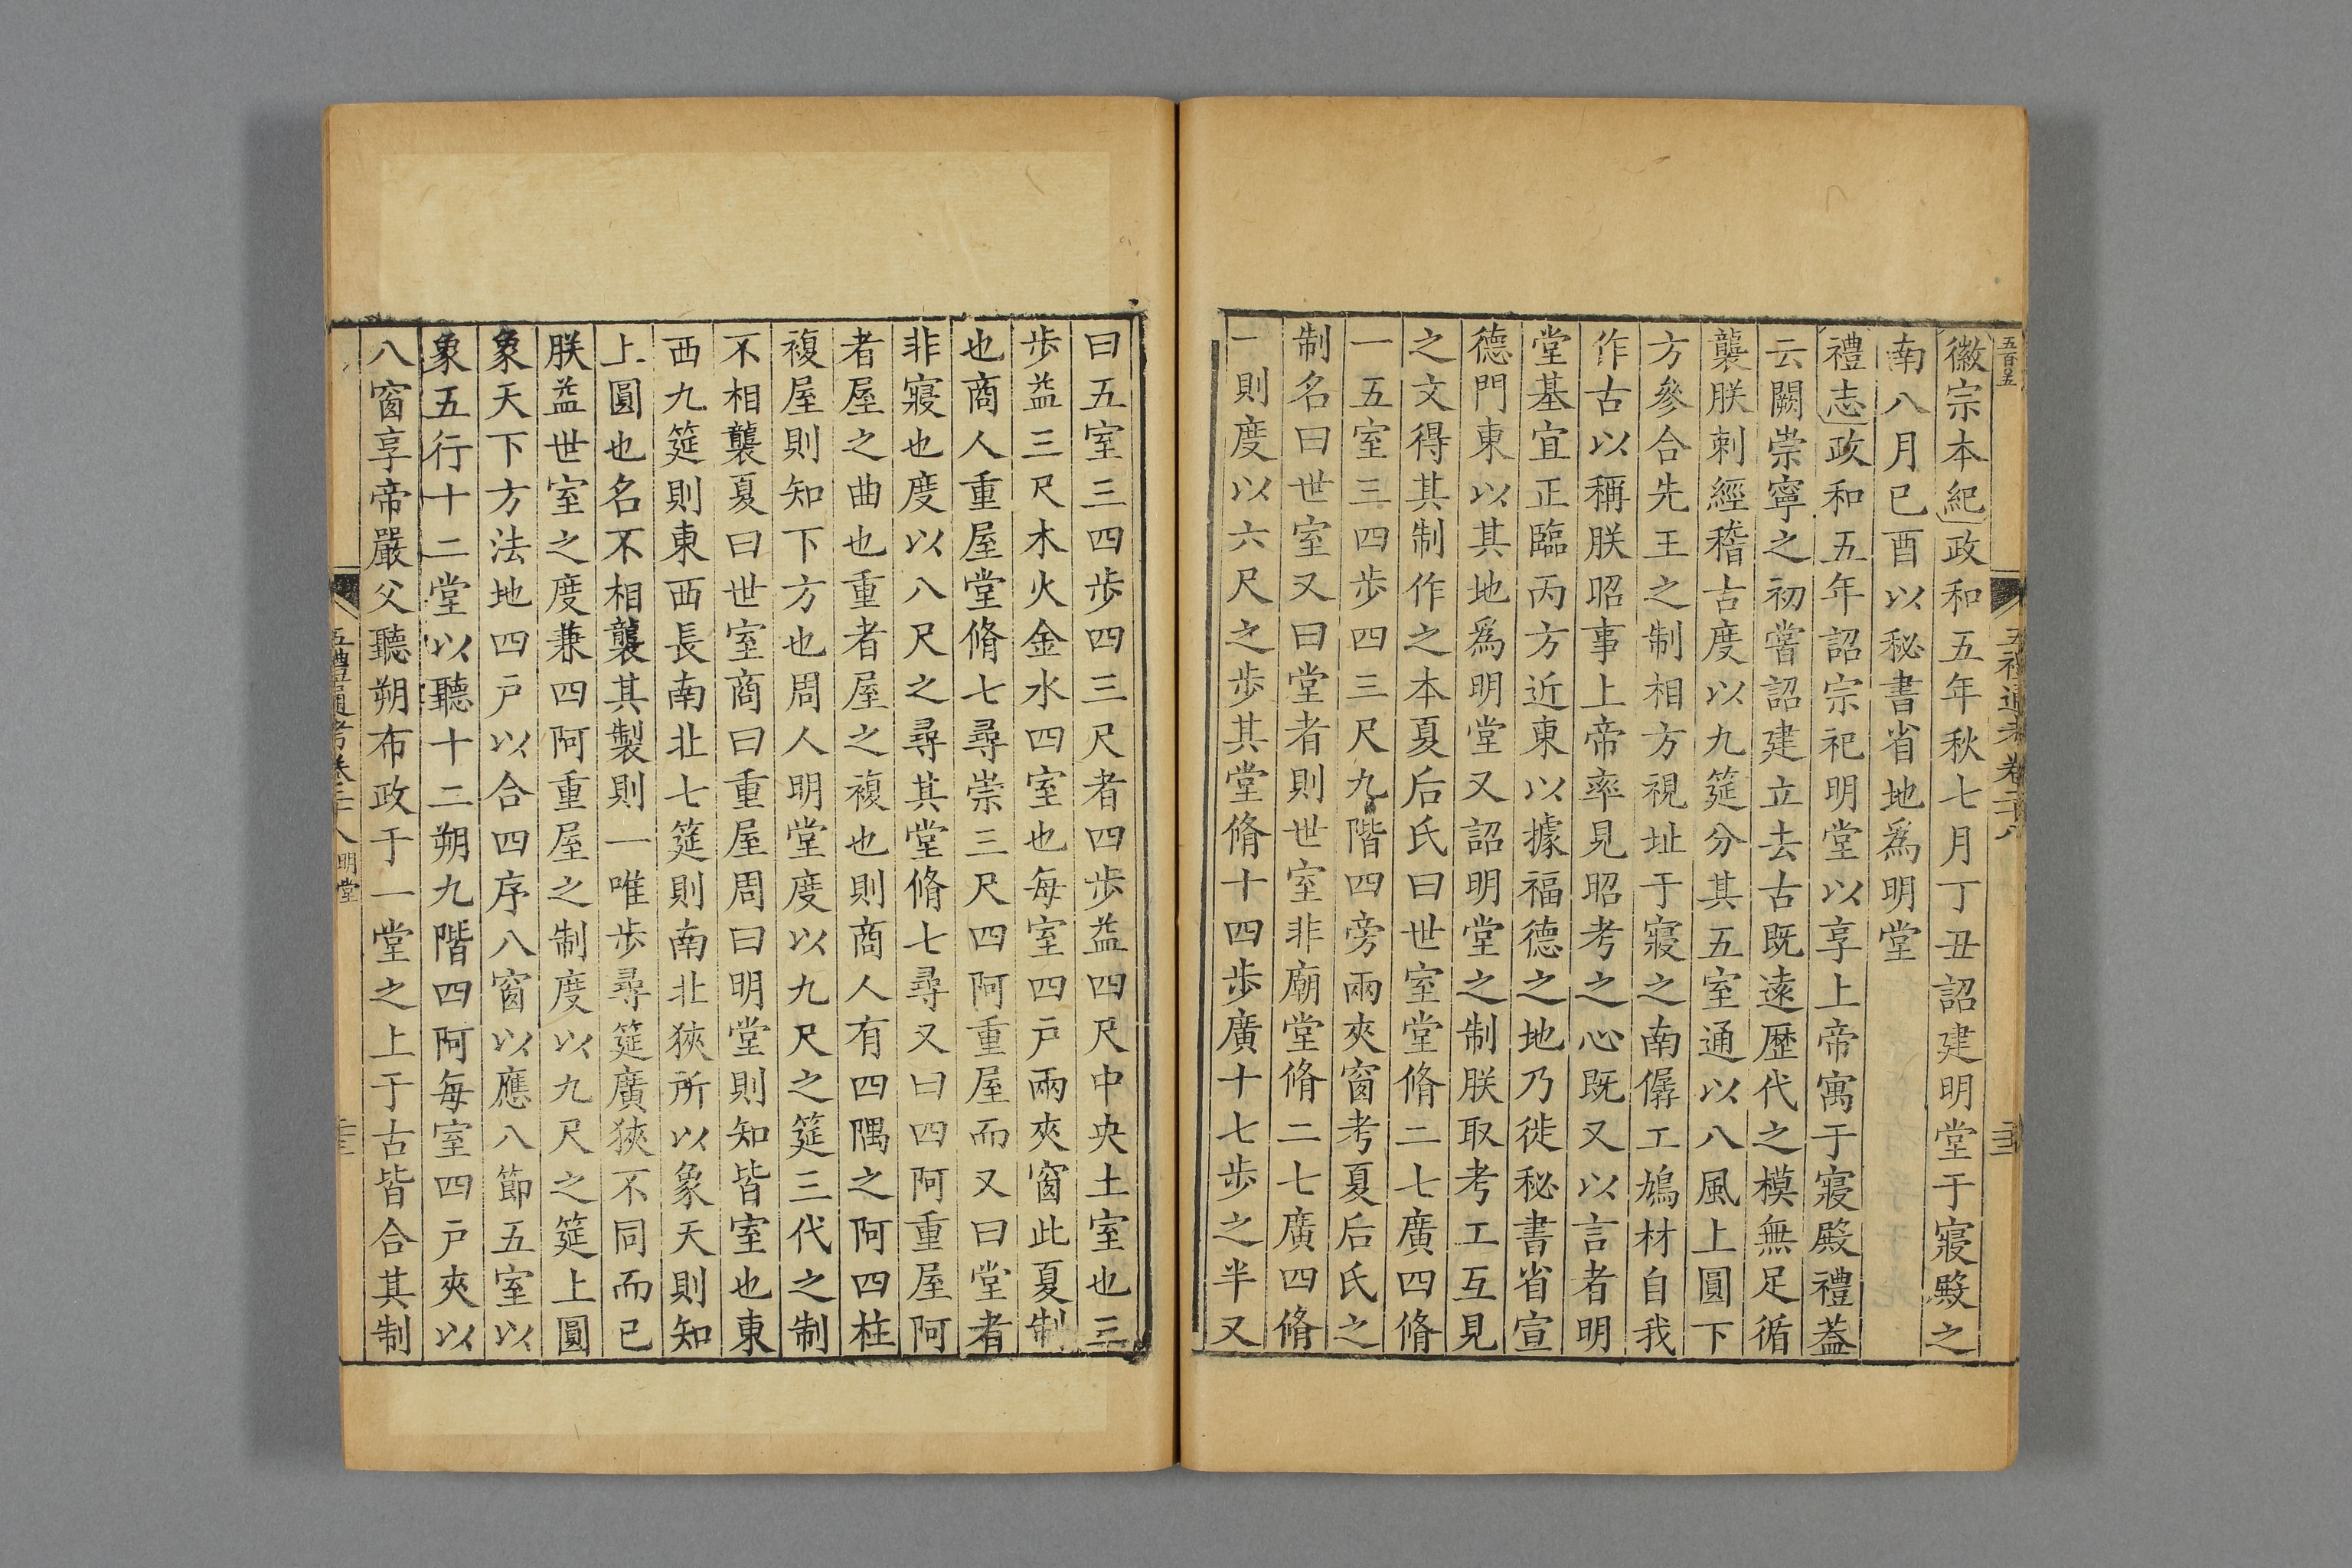 五百五
五禮通考卷二十八
徽宗本紀政和五年秋七月丁丑詔建明堂于寢殿之
南八月己酉以秘書省地爲明堂
禮志政和五年詔宗祀明堂以享上帝寓于寢殿禮蓋
云闕崇寧之初嘗詔建立去古既遠歴代之模無足循
襲朕刺經稽古度以九筵分其五室通以八風上圓下
方參合先王之制相方視址于寢之南僝工鳩材自我
作古以稱朕昭事上帝率見昭考之心既又以言者明
堂基宜正臨丙方近東以據福德之地乃徙秘書省宣
德門東以其地爲明堂又詔明堂之制朕取考工互見
之文得其制作之本夏后氏曰世室堂脩二七廣四脩
一五室三四步四三尺九階四旁兩夾窗考夏后氏之
制名曰世室又曰堂者則世室非廟堂脩二七廣四脩
一則度以六尺之步其堂脩十四步廣十七步之半又
曰五室三四步四三尺者四步益四尺中央土室也三
步益三尺木火金水四室也每室四戶兩夾窗此夏制
也商人重屋堂脩七尋崇三尺四阿重屋而又曰堂者
非寢也度以八尺之尋其堂脩七尋又曰四阿重屋阿
者屋之曲也重者屋之複也則商人有四隅之阿四柱
複屋則知下方也周人明堂度以九尺之筵三代之制
不相襲夏曰世室商曰重屋周曰明堂則知皆室也東
西九筵則東西長南北七筵則南北狹所以象天則知
上圓也名不相襲其製則一唯步尋筵廣狹不同而已
朕益世室之度兼四阿重屋之制度以九尺之筵上圓
象天下方法地四戶以合四序八窗以應八節五室以
象五行十二堂以聽十二朔九階四阿每室四戶夾以
八窗享帝嚴父聽朔布政于一堂之上于古皆合其制
五禮通考卷二十八 明堂